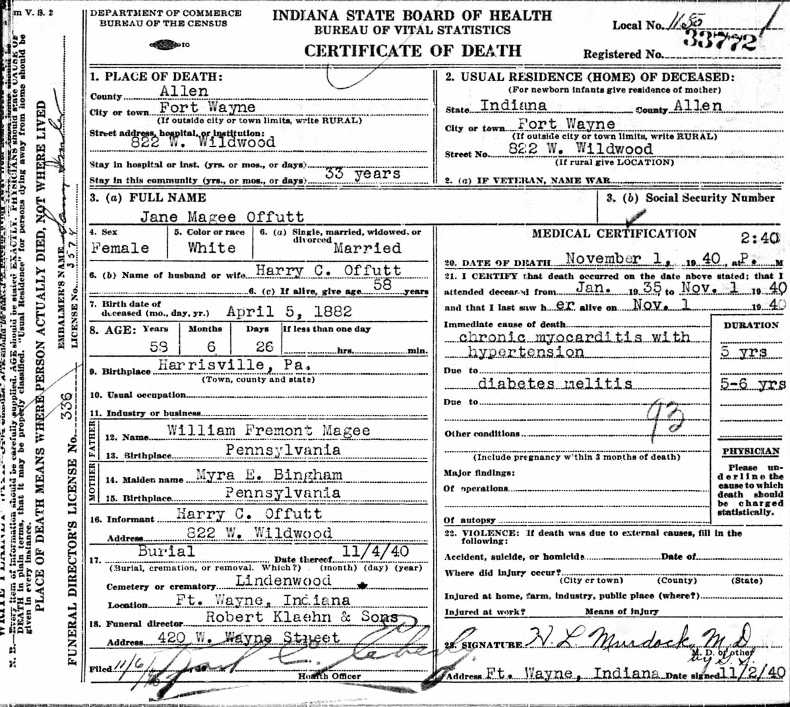 m V. S. 2
DEPARTMENT OF COMMERCE
BUREAU OF THE CENSUS
INDIANA STATE BOARD OF HEALTH
BUREAU OF VITAL STATISTICS
CERTIFICATE OF DEATH
Local No. 1180
Registered No. 33772
1. PLACE OF DEATH:
County Allen
City or town Fort Wayne
(If outside city or town limits, write RURAL)
Street address, hospital, or institution:
822 W. Wildwood
Stay in hospital or inst. (yrs. or mos., or days)
Stay in this community (yrs., or mos., or days) 33 years
2. USUAL RESIDENCE (HOME) OF DECEASED:
(For newborn infants give residence of mother)
State Indiana County Allen
City or town Fort Wayne
(If outside city or town limits, write RURAL)
Street No. 822 W. Wildwood
(If rural give LOCATION)
2. (a) IF VETERAN, NAME WAR
3. (a) FULL NAME
Jane Magee Offutt
3. (b) Social Security Number
4. Sex
Female
5. Color or race
White
6. (a) Single, married, widowed, or divorced
Married
6. (b) Name of husband or wife Harry C. Offutt
6. (c) If alive, give age 58 years
7. Birth date of
deceased (mo., day, yr.) April 5, 1882
8. AGE: Years Months Days If less than one day
58 6 26 hrs. min.
9. Birthplace Harrisville, Pa.
(Town, county and state)
10. Usual occupation
11. Industry or business
FATHER
12. Name William Fremont Magee
13. Birthplace Pennsylvania
MOTHER
14. Maiden name Myra E. Bingham
15. Birthplace Pennsylvania
16. Informant Harry C. Offutt
Address 822 W. Wildwood
17. Burial Date thereof 11/4/40
(Burial, cremation, or removal. Which?) (month) (day) (year)
Cemetery or crematory Lindenwood
Location Ft. Wayne, Indiana
18. Funeral director Robert Klaehn & Sons
Address 420 W. Wayne Street
Filed 11/6
Health Officer
MEDICAL CERTIFICATION
2:40
20. DATE OF DEATH November 1, 1940 at P. M
21. I CERTIFY that death occurred on the date above stated; that I
attended deceased from Jan. 1935 to Nov. 1 1940
and that I last saw her alive on Nov. 1 1940
Immediate cause of death
chronic myocarditis with
hypertension
DURATION
5 yrs
Due to
diabetes melitis 5-6 yrs
Due to
93
Other conditions
(Include pregnancy within 3 months of death)
Major findings:
Of operations
Of autopsy
PHYSICIAN
Please un-
derline the
cause to which
death should
be charged
statistically.
22. VIOLENCE: If death was due to external causes, fill in the
following:
Accident, suicide, or homicide Date of
Where did injury occur?
(City or town) (County) (State)
Injured at home, farm, industry, public place (where?)
Injured at work? Means of injury
23. SIGNATURE H L Murdock, M D
M. D. or other
Address Ft. Wayne, Indiana Date signed 11/2/40
N. B.—Every item of information should be carefully supplied. AGE should be stated EXACTLY. PHYSICIANS should state CAUSE OF
DEATH in plain terms, that it may be properly classified. "Usual Residence" for persons dying away from home should be
given in every instance.
PLACE OF DEATH MEANS WHERE PERSON ACTUALLY DIED, NOT WHERE LIVED
EMBALMER'S NAME
LICENSE No. 3574
FUNERAL DIRECTOR'S LICENSE No. 336